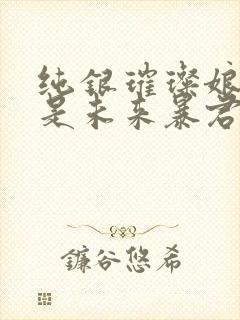 纯银璀璨娘
是未来暴君
镰谷悠希